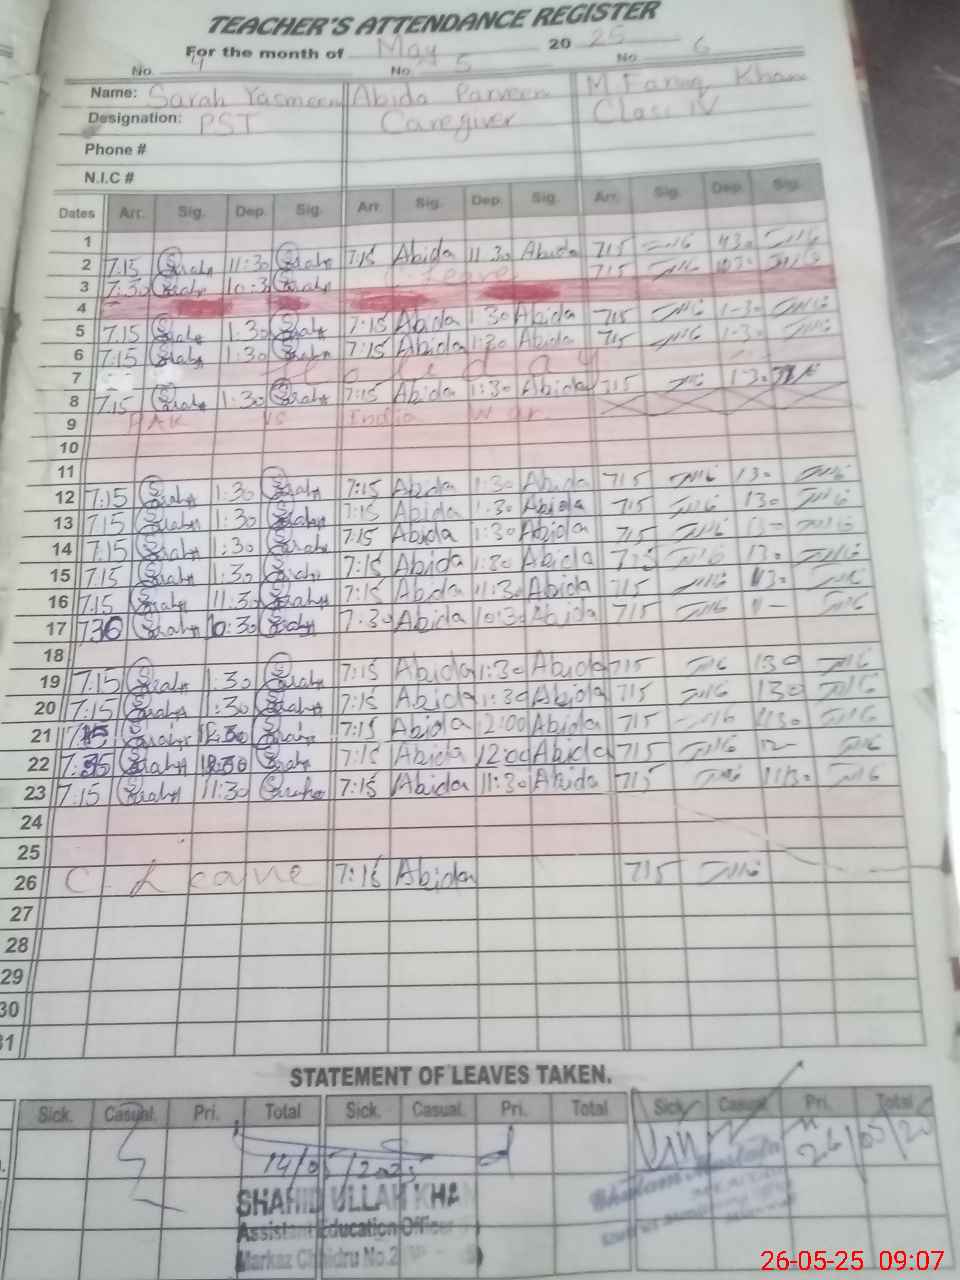 TEACHER'S ATTENDANCE REGISTER
For the month of May 2025
No. 4 No 5 No. 6
Name: Sarah Yasmeen Abida Parveen M Farooq Khan
Designation: PST Caregiver Class IV
Phone #
N.I.C #
Dates Arr. Sig. Dep. Sig. Arr. Sig. Dep. Sig. Arr. Sig. Dep. Sig.
1
2 7:15 Sarah 11:30 Sarah 7:15 Abida 11 30 Abida 715
3 7:30 Sarah 10:30 Sarah Leave 715
4
5 7.15 Sarah 1:30 Sarah 7:15 Abida 1 30 Abida 715 1-30
6 7.15 Sarah 1:30 Sarah 7:15 Abida 1:30 Abida 715 1-30
7 Holiday
8 7.15 Sarah 1:30 Sarah 7:15 Abida 1:30 Abida 715 1-30
9 PAK vs India War
10
11
12 7.15 Sarah 1:30 Sarah 7:15 Abida 1:30 Abida 715 130
13 7.15 Sarah 1:30 Sarah 7:15 Abida 1:30 Abida 715 130
14 7.15 Sarah 1:30 Sarah 7:15 Abida 1:30 Abida 715 130
15 7.15 Sarah 1:30 Sarah 7:15 Abida 1:30 Abida 715 130
16 7.15 Sarah 11:30 Sarah 7:15 Abida 11:30 Abida 715
17 730 Sarah 10:30 Sarah 7:30 Abida 10:30 Abida 715
18
19 7:15 Sarah 1:30 Sarah 7:15 Abida 1:30 Abida 715 130
20 7:15 Sarah 1:30 Sarah 7:15 Abida 1:30 Abida 715 130
21 Sarah Sarah 7:15 Abida 12:00 Abida 715
22 Sarah Sarah 7:15 Abida 12:00 Abida 715 12-
23 7:15 Sarah 11:30 Sarah 7:15 Abida 11:30 Abida 715 1130
24
25
26 C. Leave 7:15 Abida 715
27
28
29
30
31
STATEMENT OF LEAVES TAKEN.
Sick. Casual. Pri. Total Sick. Casual. Pri. Total Sick. Casual. Pri. Total
14/05/2025 26/05/25
SHAHID ULLAH KHAN
Assistant Education Officer
Markaz Chhidru No.2
26-05-25 09:07